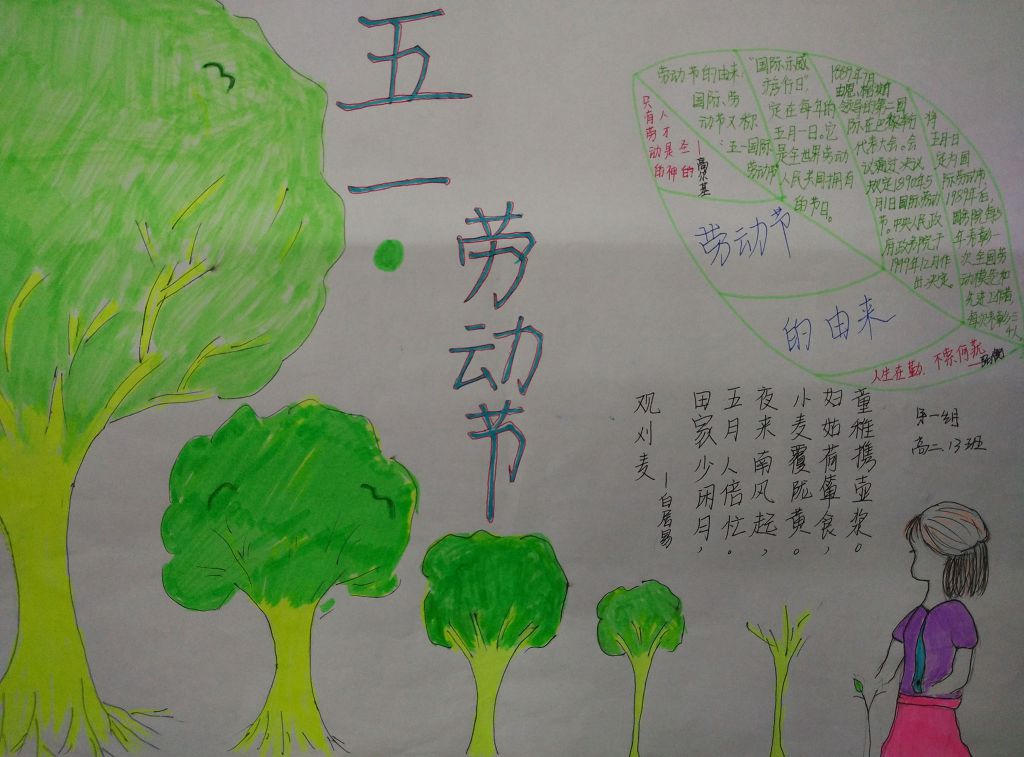 五一·劳动节
劳动节的由来:
国际劳
动节又称
"五一国际
劳动节"
"国际示威
游行日"
定在每年的
五月一日。它
是全世界劳动
人民共同拥有
的节日。
1889年7月,
由恩格斯
领导的第二国
际在巴黎举行
代表大会。会
议通过决议
规定1890年5
月1日国际劳动
节。中央人民政
府政务院于
1949年12月作
出决定。
将
五月一日
定为国
际劳动节
1989年后,
国务院每5
年表彰一
次全国劳
动模范和
先进工作者
每次表彰三
千人
只有人
劳才
动是圣
的神的
—高尔基
劳动节
的由来
人生在勤,不索何获
—张衡
第一组
高二.13班
观刈麦
—白居易
田家少闲月,
五月人倍忙。
夜来南风起,
小麦覆陇黄。
妇姑荷箪食,
童稚携壶浆。